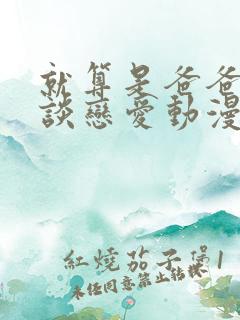 就算是爸爸
談戀愛動漫
紅燒茄子煲1
未经同意禁止转载